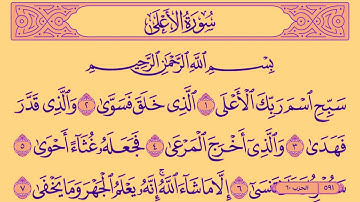 سُورَةُ الأَعْلَى
بِسْمِ اللَّهِ الرَّحْمَٰنِ الرَّحِيمِ
سَبِّحِ اسْمَ رَبِّكَ الْأَعْلَى ١ الَّذِي خَلَقَ فَسَوَّىٰ ٢ وَالَّذِي قَدَّرَ
فَهَدَىٰ ٣ وَالَّذِي أَخْرَجَ الْمَرْعَىٰ ٤ فَجَعَلَهُ غُثَاءً أَحْوَىٰ ٥
تَنسَىٰ ٦ إِلَّا مَا شَاءَ اللَّهُ إِنَّهُ يَعْلَمُ الْجَهْرَ وَمَا يَخْفَىٰ ٧
٥٩١ الحزب ٦٠